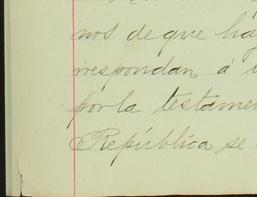 nos de que há
rrespondan á
por la testamen
República se